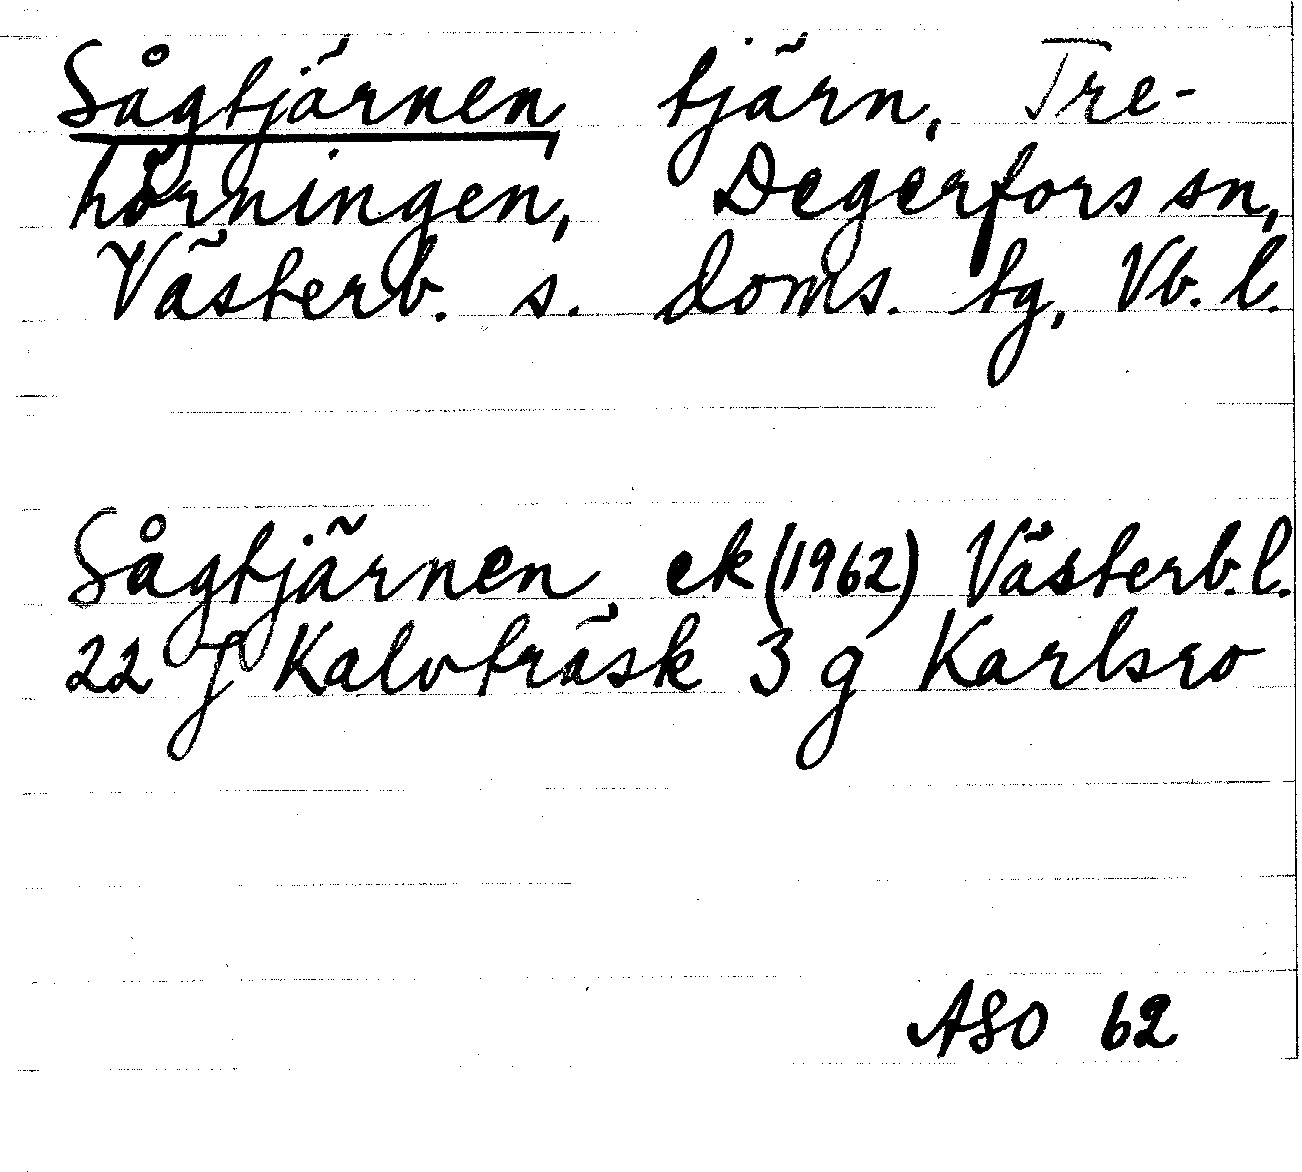 Sågtjärnen, tjärn, Tre-
hörningen, Degerfors sn,
Västerb. s. doms. tg, Vb. l.
Sågtjärnen ek (1962) Västerb. l.
22 J Kalvträsk 3 g Karlsro
ASO 62